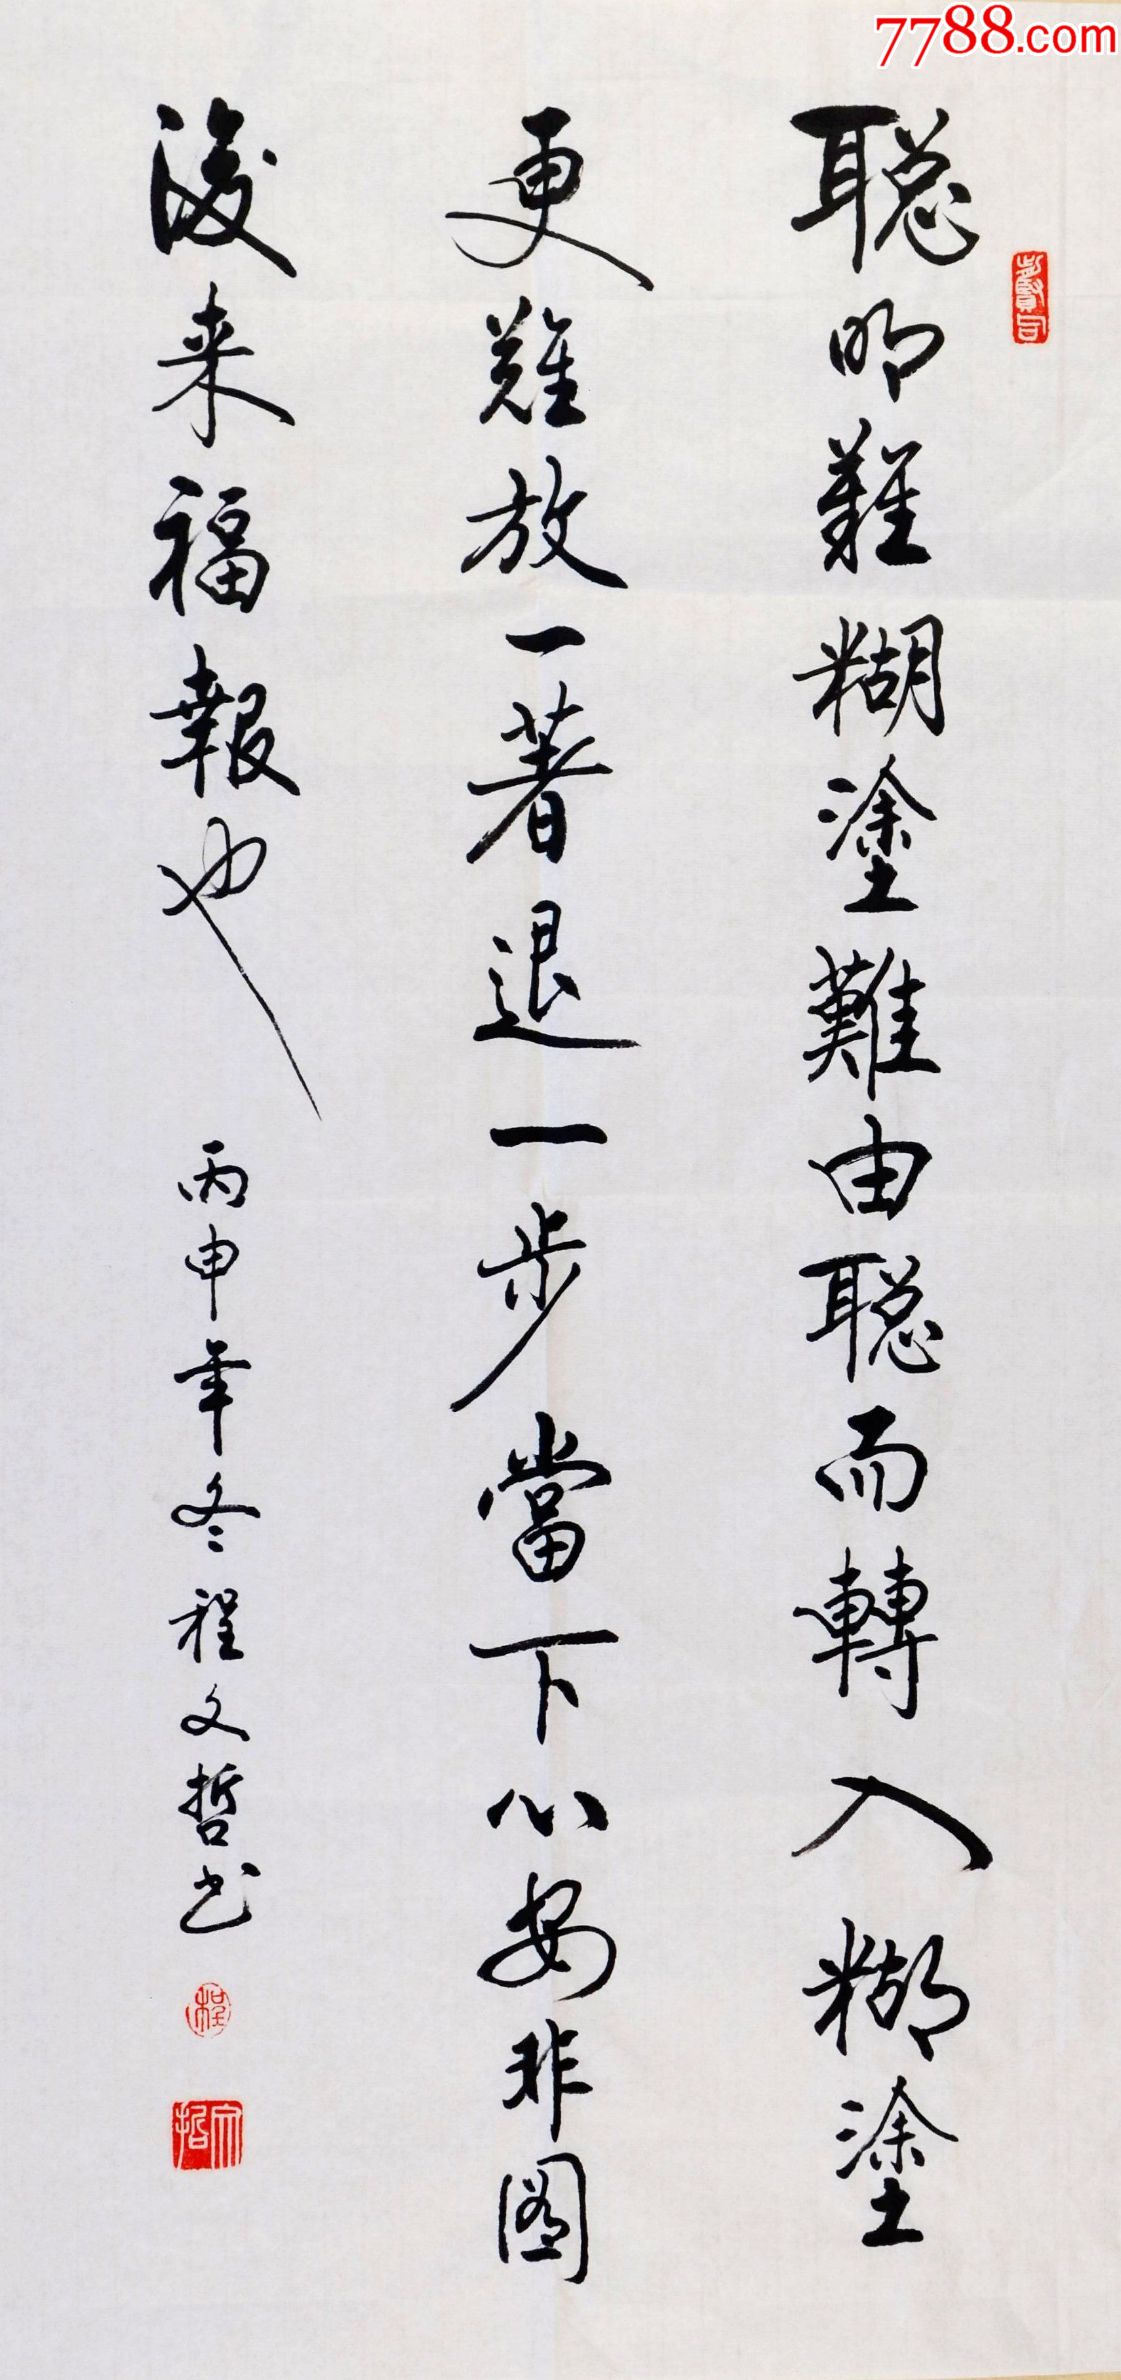 聪明難糊塗難由聪而轉入糊塗
更難放一著退一步當下心安非圖
後来福報也
丙申年冬程文哲书
程
文哲
7788.com